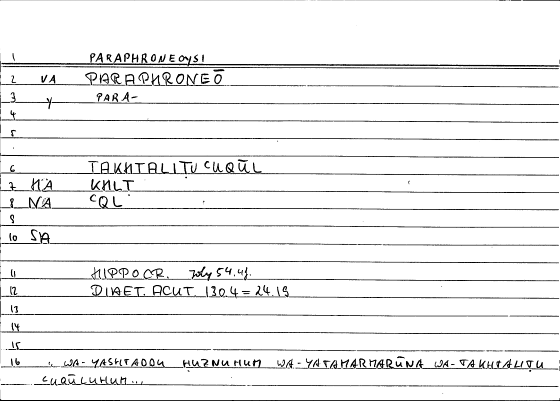 1 PARAPHRONEOYSI
2 VA PARAPHRONEŌ
3 y PARA-
4
5
6 TAKHTALIṬU ʿUQŪL
7 HA KHLṬ
8 NA ʿQL
9
10 SA
11 HIPPOCR. 54.
12 DIAET. ACUT. 130.4 = 24.19
13
14
15
16 .. WA-YASHTADDU ḤUZNUHUM WA-YATAMARMARŪNA WA-TAKHTALIṬU
ʿUQŪLUHUM...